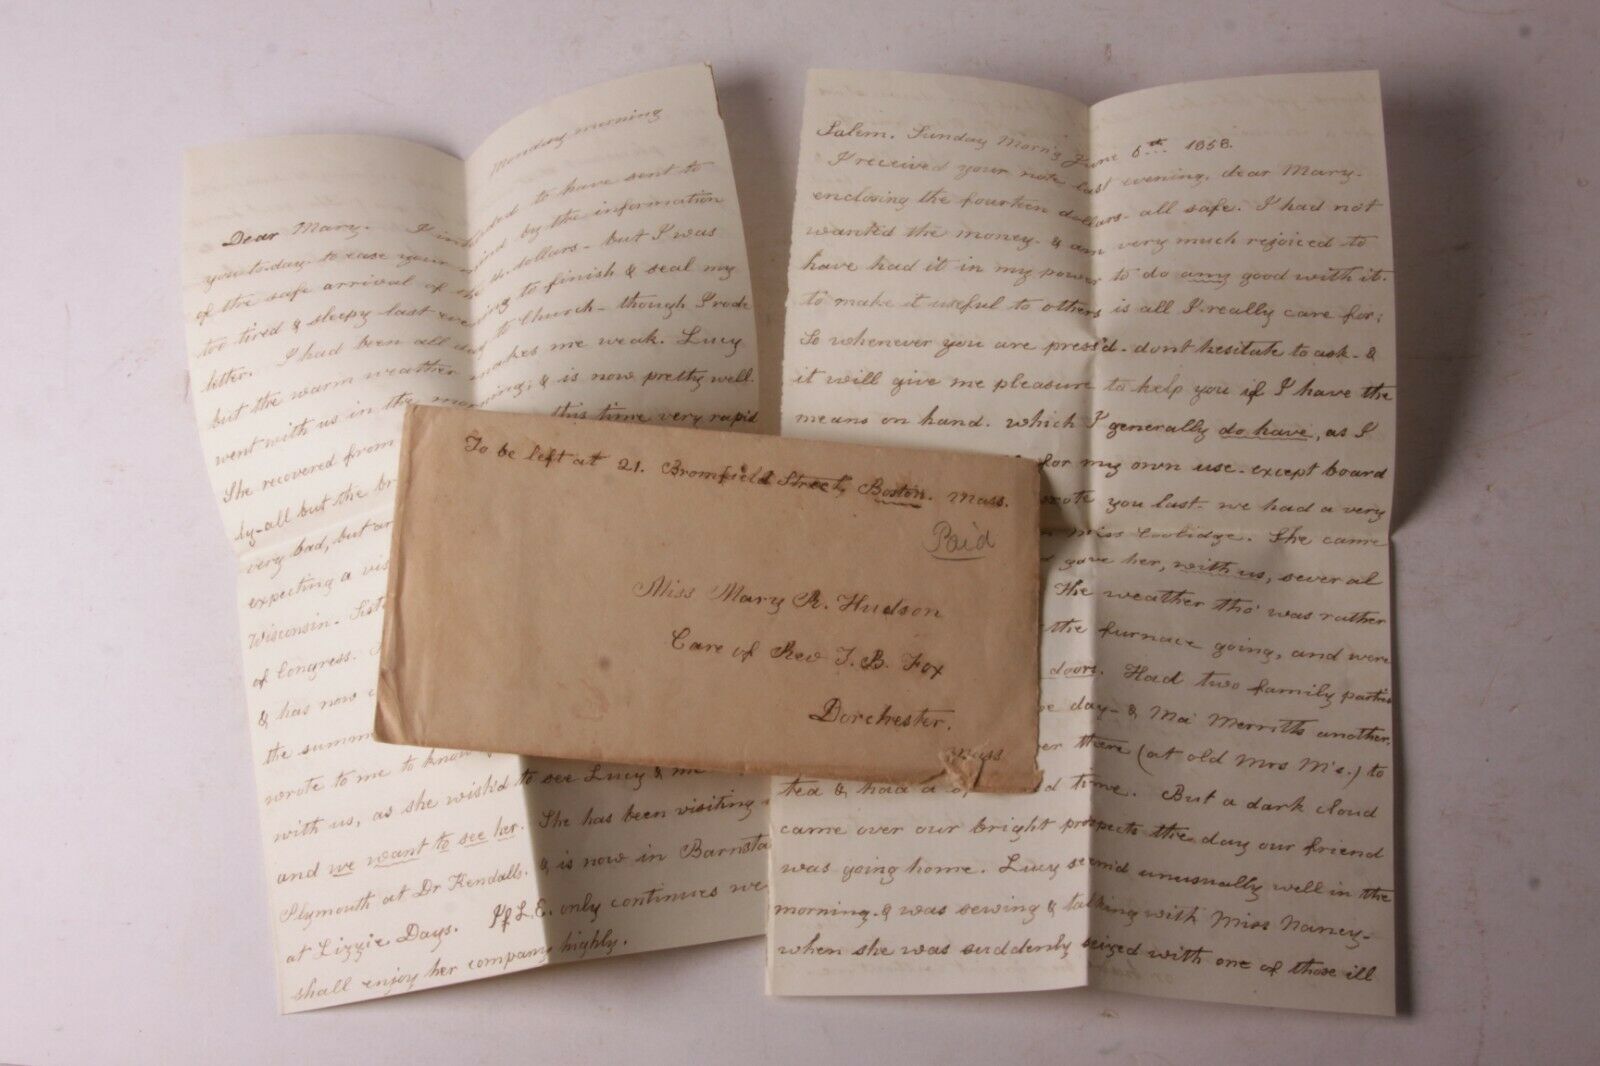 Monday morning
Dear Mary. I intended to have sent to
you to-day to ease your mind by the information
of the safe arrival of the 14 dollars - but I was
too tired & sleepy last evening to finish & seal my
letter. I had been all day to Church - though I rode
but the warm weather makes me weak. Lucy
went with us in the morning; & is now pretty well.
She recovered from this time very rapid
ly - all but the
very bad, but
expecting a
Wisconsin.
of Congress.
& has now
the
wrote to me to know
with us, as she wish'd to see Lucy & me
and we want to see her. She has been visiting
Plymouth at Dr Kendalls. & is now in
at Lizzie Days. If L.E. only continues
shall enjoy her company highly.
To be left at 21. Bromfield Street, Boston. Mass.
Paid
Miss Mary R. Hudson
Care of Rev T. B. Fox
Dorchester.
Mass
Salem. Sunday Morn'g June 6th 1858.
I received your note last evening, dear Mary -
enclosing the fourteen dollars - all safe. I had not
wanted the money - & am very much rejoiced to
have had it in my power to do any good with it.
to make it useful to others is all I really care for;
So whenever you are press'd - dont hesitate to ask - &
it will give me pleasure to help you if I have the
means on hand. which I generally do have, as I
for my own use - except board
wrote you last - we had a very
Miss Coolidge. She came
gave her, with us, several
The weather tho' was rather
the furnace going, and were
doors. Had two family parties
day - & Ma' Merritts another.
there (at old Mrs M's.) to
tea & had a time. But a dark cloud
came over our bright prospects the day our friend
was going home. Lucy seem'd unusually well in the
morning - & was sewing & talking with Miss Nancy -
when she was suddenly seized with one of those ill